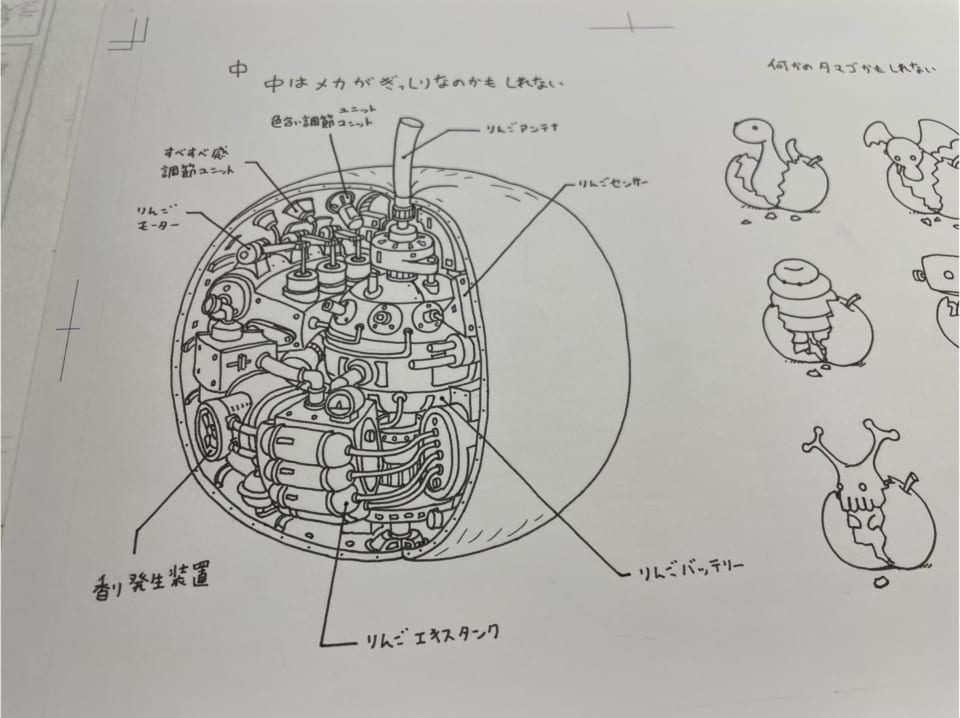 中
中はメカがぎっしりなのかもしれない
何かのタマゴかもしれない
ユニット
色合い調節ユニット
りんごアンテナ
すべすべ感
調節ユニット
りんごセンサー
りんご
モーター
りんごバッテリー
香り発生装置
りんごエキスタンク